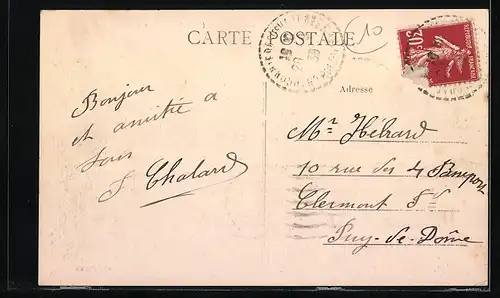 CARTE POSTALE
10
Adresse
30
REPUBLIQUE FRANCAISE
Bonjour
et amitié a
tous
S. Chalard
Mr Hébrard
10 rue des 4
Clermont Fd
Puy-de-Dôme